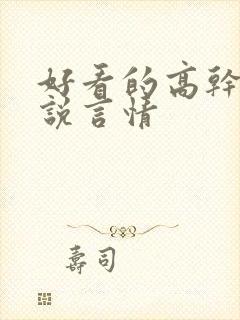 好看的高幹
說言情
壽司